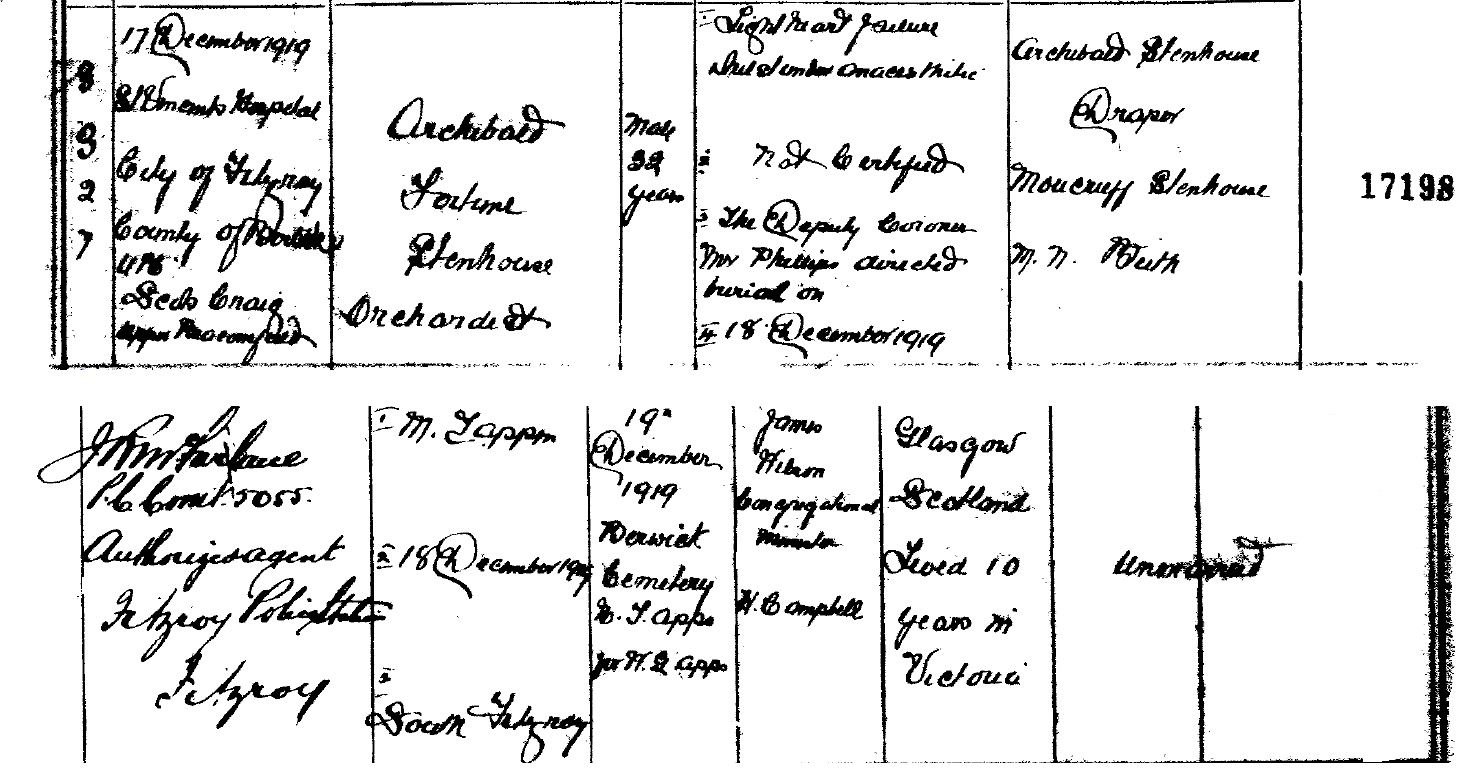 8
3
2
7
17 December 1919
St Vincents Hospital
City of Fitzroy
County of Bourke
U/R
Scots Craig
Upper
Archibald
Fortune
Stenhouse
Orchardist
Male
32
years
I
heart failure
whilst under anaesthetic
2 Not Certified
3 The Deputy Coroner
Mr Phillips directed
burial on
4 18 December 1919
Archibald Stenhouse
Draper
Moncrieff Stenhouse
M. N. Keith
17198
McFarlane
P.C. Const. 5055.
Authorized agent
Fitzroy Police Station
Fitzroy
1 M. Tappin
2 18 December 1919
3
South Fitzroy
19th
December
1919
Berwick
Cemetery
E. T. Apps
for W. G. Apps
James
Wilson
Congregational
Minister
H. Campbell
Glasgow
Scotland
Lived 10
years in
Victoria
Unmarried